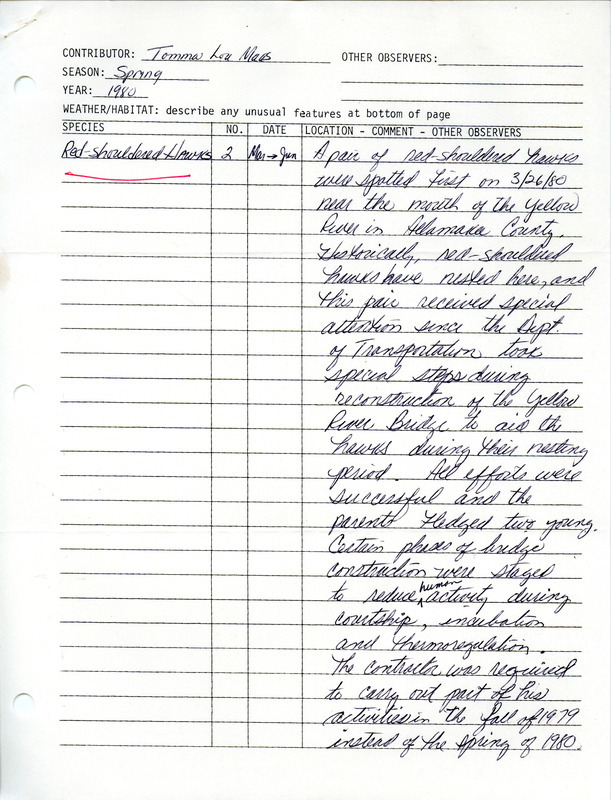 CONTRIBUTOR: Tomma Lou Maas OTHER OBSERVERS:
SEASON: Spring
YEAR: 1980
WEATHER/HABITAT: describe any unusual features at bottom of page
SPECIES NO. DATE LOCATION - COMMENT - OTHER OBSERVERS
Red-shouldered Hawks 2 Mar → Jun A pair of red-shouldered hawks
were spotted first on 3/26/80
near the mouth of the Yellow
River in Allamakee County.
Historically, red-shouldered
hawks have nested here, and
this pair received special
attention since the Dept.
of Transportation took
special steps during
reconstruction of the Yellow
River Bridge to aid the
hawks during their nesting
period. All efforts were
successful and the
parents fledged two young.
Certain phases of bridge
construction were staged
to reduce human activity during
courtship, incubation
and thermoregulation.
The contractor was required
to carry out part of his
activities in the fall of 1979
instead of the spring of 1980.